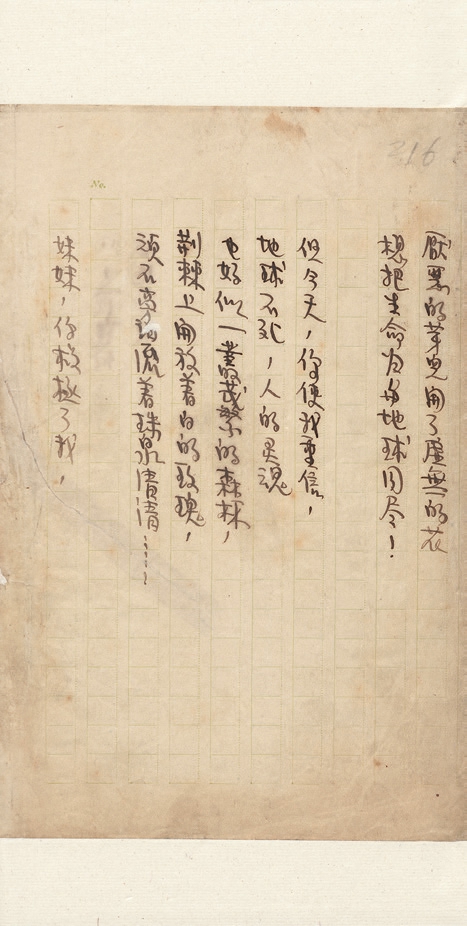 316
No.
厭累的芽兒開了虛無的花
想把生命为与地球同尽！
但今天，你使我重信，
地球不死，人的灵魂
也好似一叢茂繁的森林，
荆棘上開放着白的玫瑰，
頑石旁流着珠泉清清……
妹妹，你救拯了我，